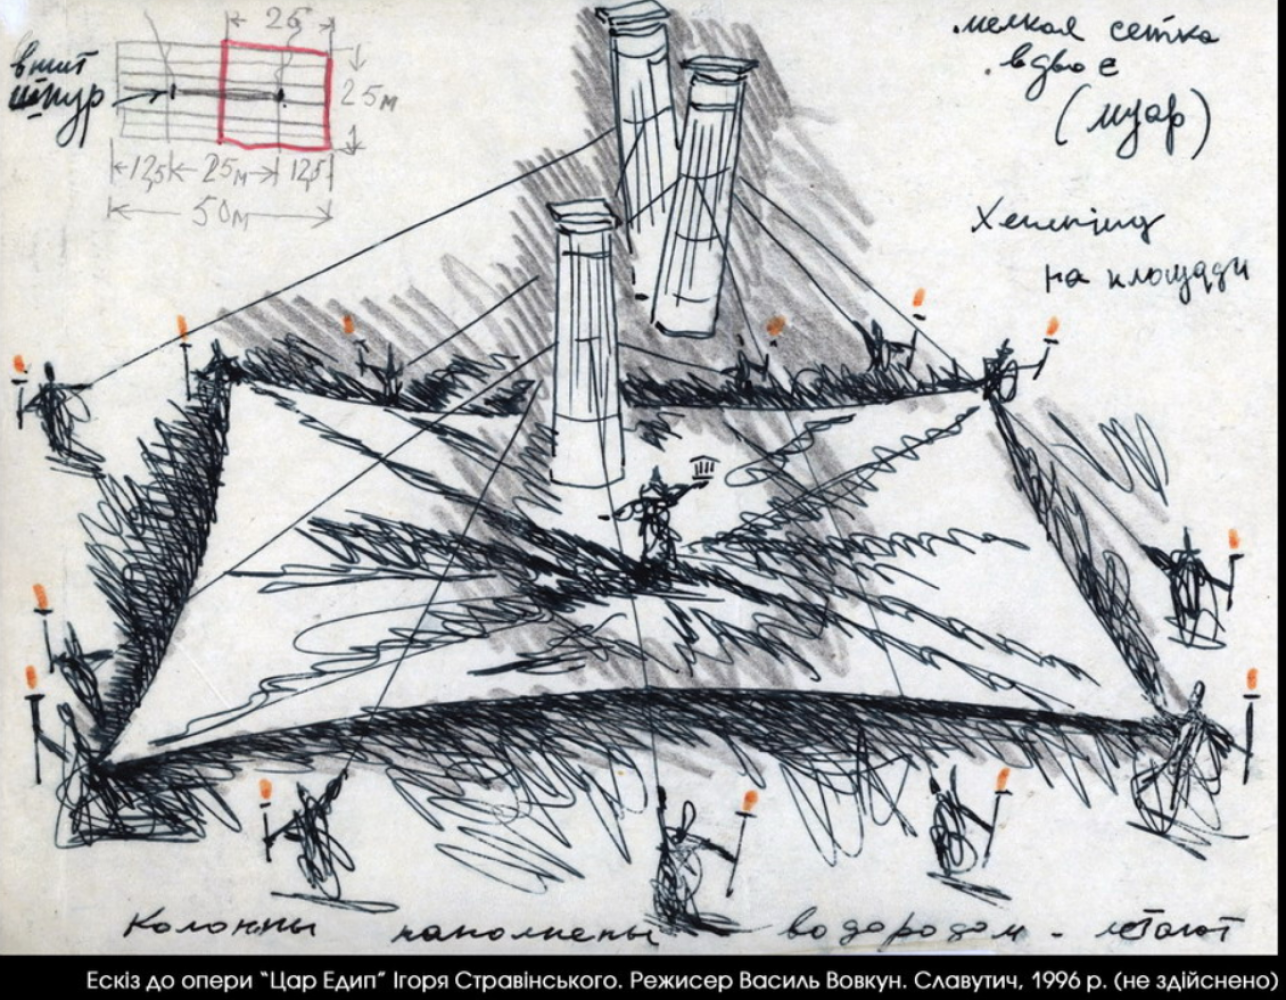 26
вшит
шнур
25м
12,5
25м
12,5
50м
мелкая сетка
вдвое
(муар)
Хеппенінг
на площади
Колонны наполнены водородом - летают
Ескіз до опери “Цар Едип” Ігоря Стравінського. Режисер Василь Вовкун. Славутич, 1996 р. (не здійснено)